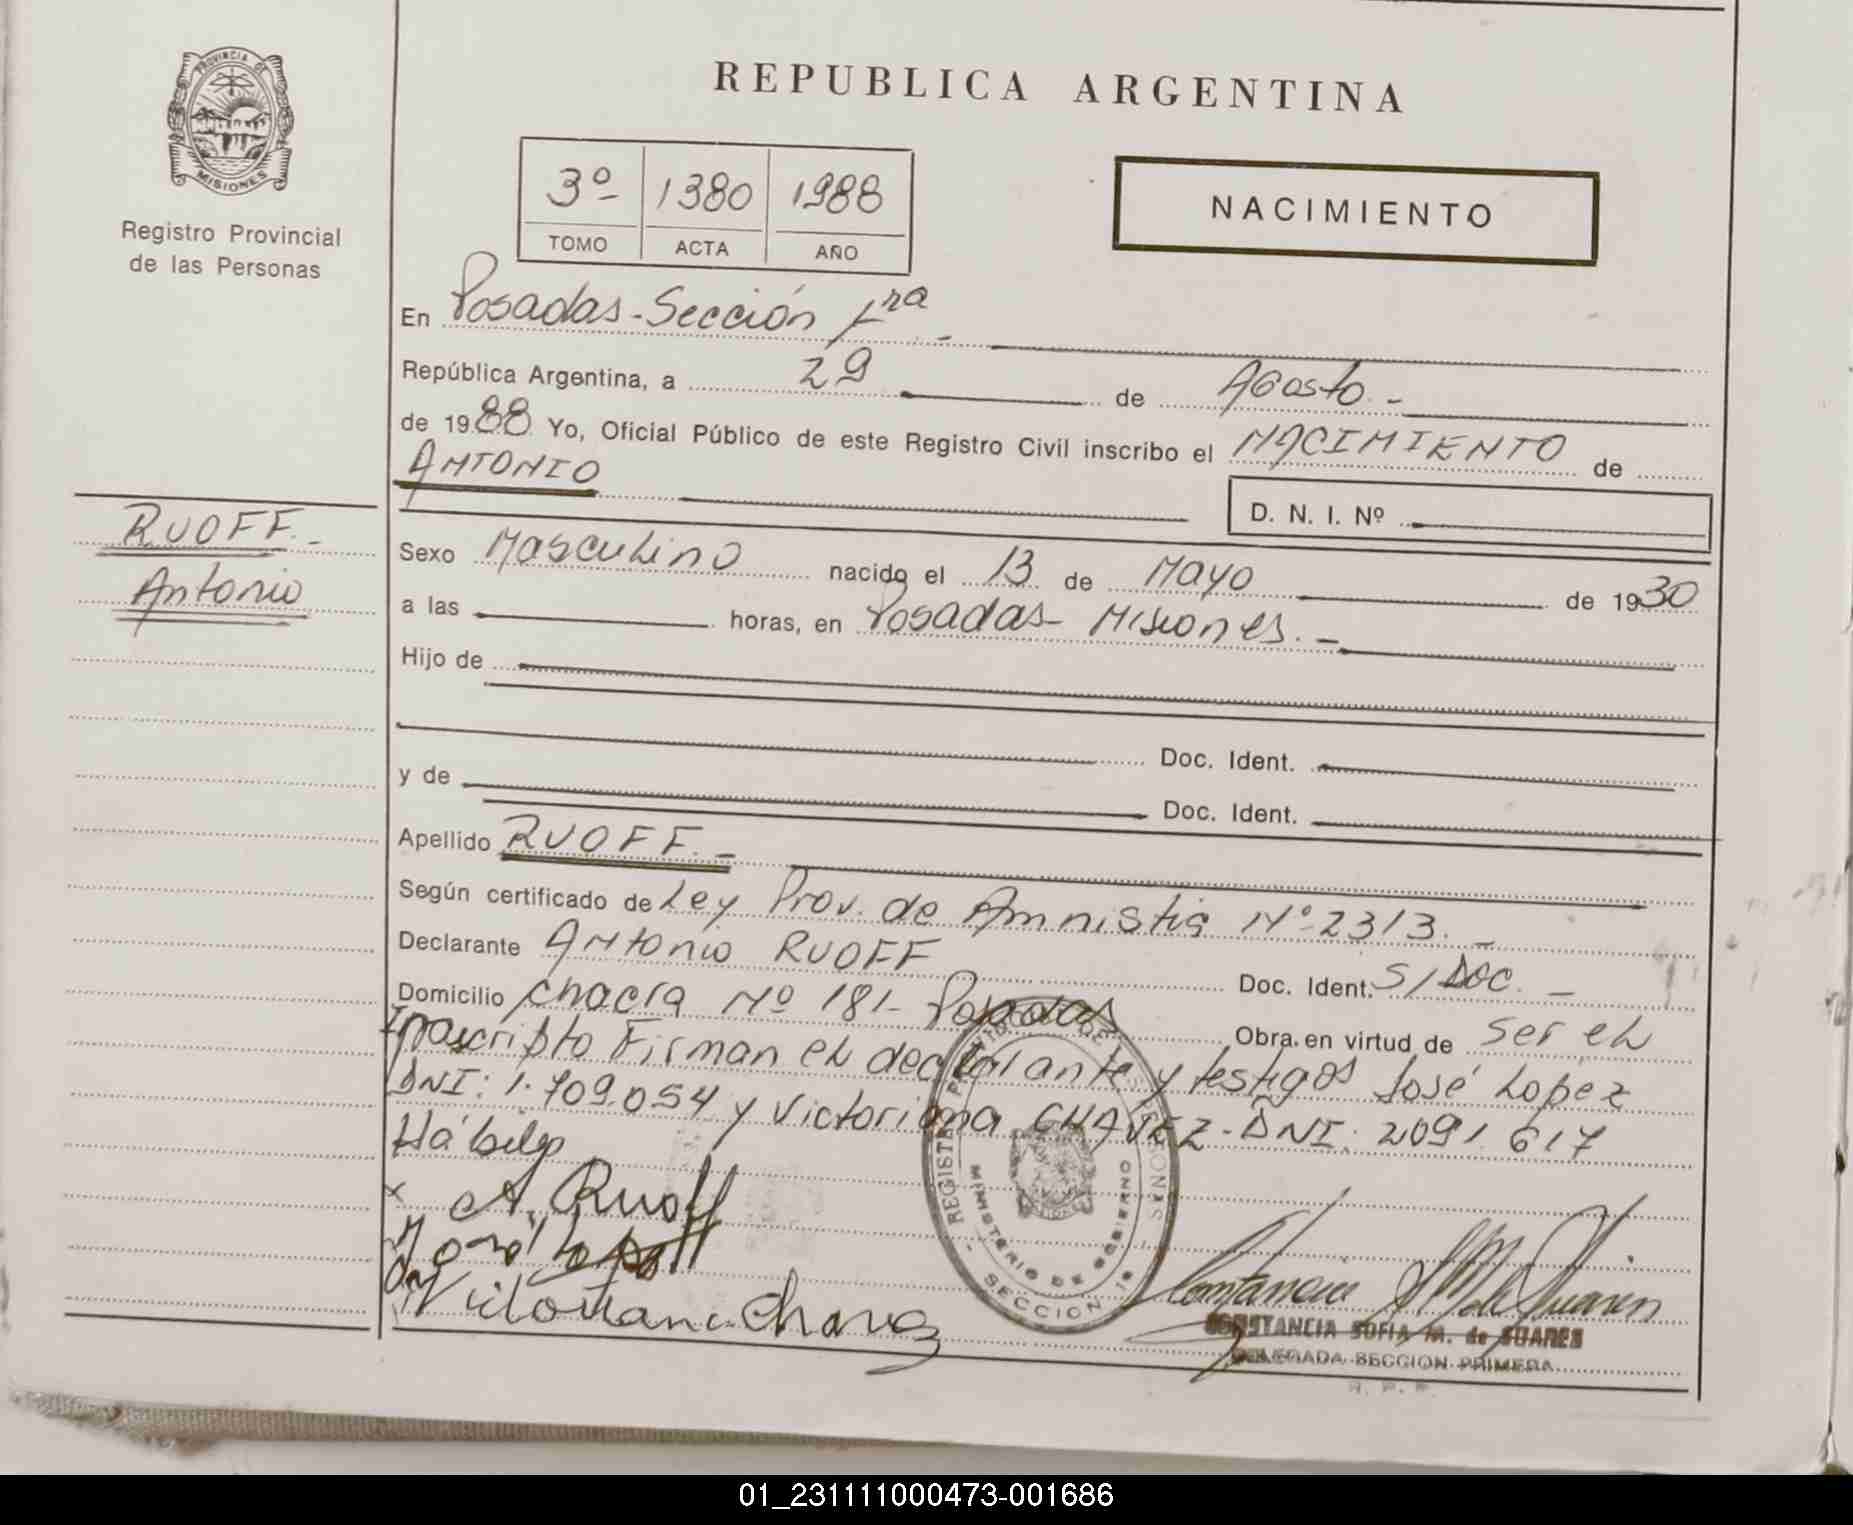 PROVINCIA DE
MISIONES
Registro Provincial
de las Personas
REPUBLICA ARGENTINA
3º- 1380 1988
TOMO ACTA AÑO
NACIMIENTO
En Posadas-Sección 1ra -
República Argentina, a 29 de Agosto.-
de 1988 Yo, Oficial Público de este Registro Civil inscribo el NACIMIENTO de
ANTONIO
D. N. I. Nº
RUOFF.-
Antonio
Sexo Masculino nacido el 13 de Mayo de 1930
a las horas, en Posadas- Misiones.-
Hijo de
Doc. Ident.
y de Doc. Ident.
Apellido RUOFF.-
Según certificado de Ley Prov. de Amnistia Nº 2313.-
Declarante Antonio RUOFF Doc. Ident. S/Doc.-
Domicilio chacra Nº 181- Posadas Obra en virtud de ser el
Inscripto Firman el declarante y testigos José Lopez
DNI: 1.709.054 y Victoriana CHAVEZ-DNI: 2091.617
Hábiles
x A. Ruoff
José Lopez
Victoriana Chavez
REGISTRO PROVINCIAL DE LAS PERSONAS
MINISTERIO DE GOBIERNO
- SECCION 1ª
Constancia S M de Suares
CONSTANCIA SOFIA M. de SUARES
DELEGADA SECCION PRIMERA
R. P. P.
01_231111000473-001686